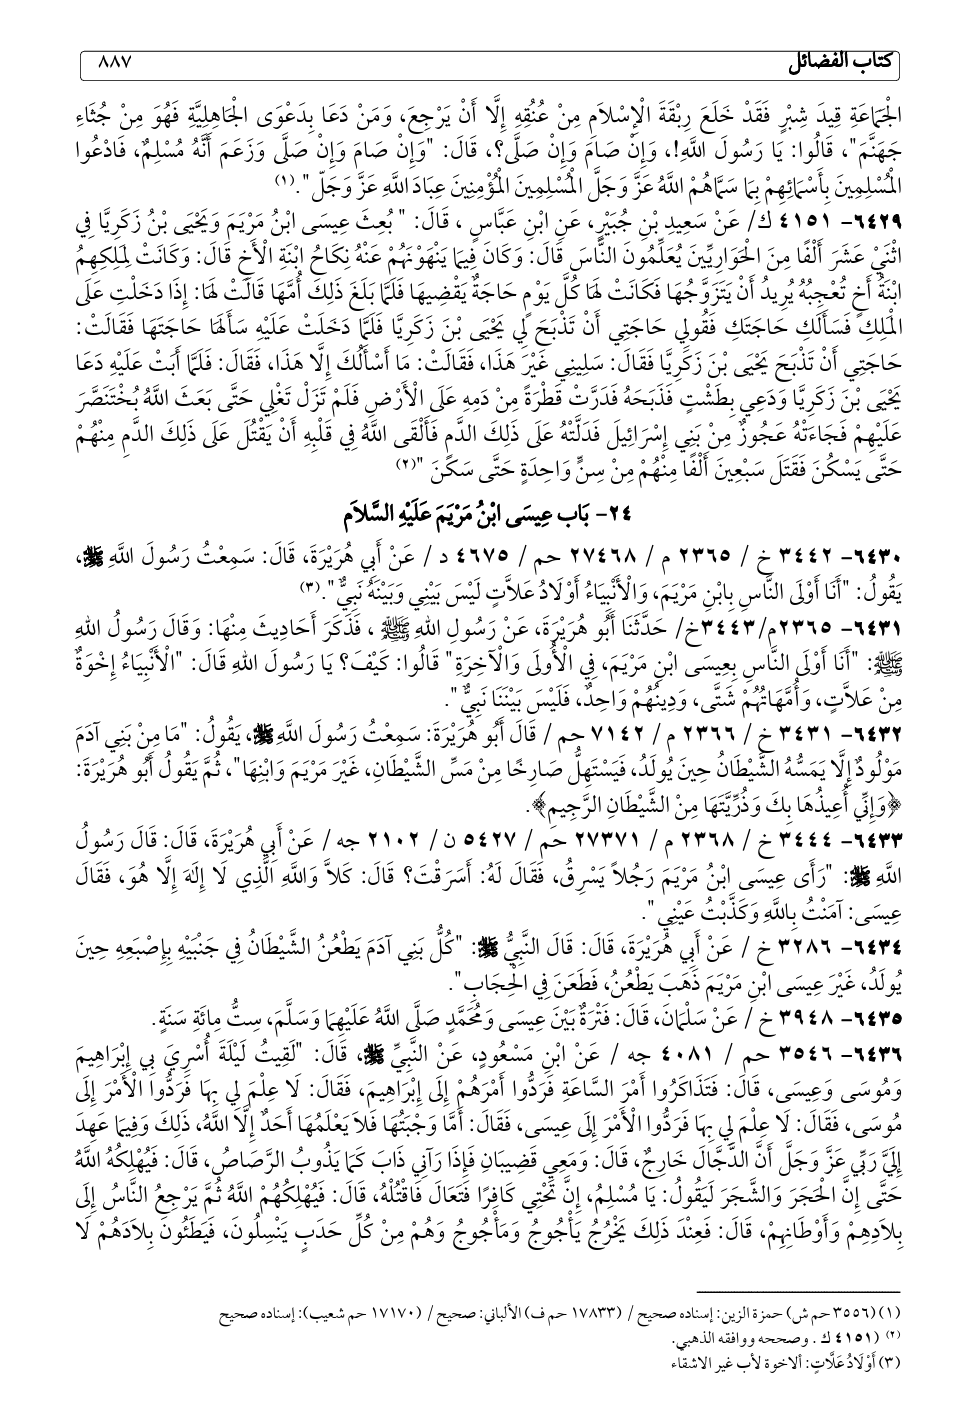 كتاب الفضائل ٨٨٧
الْجَمَاعَةِ قِيدَ شِبْرٍ فَقَدْ خَلَعَ رِبْقَةَ الْإِسْلَامِ مِنْ عُنُقِهِ إِلَّا أَنْ يَرْجِعَ، وَمَنْ دَعَا بِدَعْوَى الْجَاهِلِيَّةِ فَهُوَ مِنْ جُثَاءِ
جَهَنَّمَ"، قَالُوا: يَا رَسُولَ اللَّهِ!، وَإِنْ صَامَ وَإِنْ صَلَّى؟، قَالَ: "وَإِنْ صَامَ وَإِنْ صَلَّى وَزَعَمَ أَنَّهُ مُسْلِمٌ، فَادْعُوا
الْمُسْلِمِينَ بِأَسْمَائِهِمْ بِمَا سَمَّاهُمْ اللَّهُ عَزَّ وَجَلَّ الْمُسْلِمِينَ الْمُؤْمِنِينَ عِبَادَ اللَّهِ عَزَّ وَجَلّ".(١)
٦٤٢٩- ٤١٥١ ك/ عَنْ سَعِيدِ بْنِ جُبَيْرٍ، عَنِ ابْنِ عَبَّاسٍ ، قَالَ: " بُعِثَ عِيسَى ابْنُ مَرْيَمَ وَيَحْيَى بْنُ زَكَرِيَّا فِي
اثْنَيْ عَشَرَ أَلْفًا مِنَ الْحَوَارِيِّينَ يُعَلِّمُونَ النَّاسَ قَالَ: وَكَانَ فِيمَا يَنْهَوْنَهُمْ عَنْهُ نِكَاحُ ابْنَةِ الْأَخِ قَالَ: وَكَانَتْ لِمَلِكِهِمُ
ابْنَةُ أَخٍ تُعْجِبُهُ يُرِيدُ أَنْ يَتَزَوَّجُهَا فَكَانَتْ لَهَا كُلَّ يَوْمٍ حَاجَةٌ يَقْضِيهَا فَلَمَّا بَلَغَ ذَلِكَ أُمَّهَا قَالَتْ لَهَا: إِذَا دَخَلْتِ عَلَى
الْمَلِكِ فَسَأَلَكِ حَاجَتَكِ فَقُولِي حَاجَتِي أَنْ تَذْبَحَ لِي يَحْيَى بْنَ زَكَرِيَّا فَلَمَّا دَخَلَتْ عَلَيْهِ سَأَلَهَا حَاجَتَهَا فَقَالَتْ:
حَاجَتِي أَنْ تَذْبَحَ يَحْيَى بْنَ زَكَرِيَّا فَقَالَ: سَلِينِي غَيْرَ هَذَا، فَقَالَتْ: مَا أَسْأَلُكَ إِلَّا هَذَا، فَقَالَ: فَلَمَّا أَبَتْ عَلَيْهِ دَعَا
يَحْيَى بْنَ زَكَرِيَّا وَدَعِي بِطَشْتٍ فَذَبَحَهُ فَدَرَتْ قَطْرَةٌ مِنْ دَمِهِ عَلَى الْأَرْضِ فَلَمْ تَزَلْ تَغْلِي حَتَّى بَعَثَ اللَّهُ بُخْتَنَصَّرَ
عَلَيْهِمْ فَجَاءَتْهُ عَجُوزٌ مِنْ بَنِي إِسْرَائِيلَ فَدَلَّتْهُ عَلَى ذَلِكَ الدَّمِ فَأَلْقَى اللَّهُ فِي قَلْبِهِ أَنْ يَقْتُلَ عَلَى ذَلِكَ الدَّمِ مِنْهُمْ
حَتَّى يَسْكُنَ فَقَتَلَ سَبْعِينَ أَلْفًا مِنْهُمْ مِنْ سِنٍّ وَاحِدَةٍ حَتَّى سَكَنَ "(٢)
٢٤- بَاب عِيسَى ابْنُ مَرْيَمَ عَلَيْهِ السَّلَام
٦٤٣٠- ٣٤٤٢ خ / ٢٣٦٥ م / ٢٧٤٦٨ حم / ٤٦٧٥ د / عَنْ أَبِي هُرَيْرَةَ، قَالَ: سَمِعْتُ رَسُولَ اللَّهِ ﷺ،
يَقُولُ: "أَنَا أَوْلَى النَّاسِ بِابْنِ مَرْيَمَ، وَالْأَنْبِيَاءُ أَوْلَادُ عَلَّاتٍ لَيْسَ بَيْنِي وَبَيْنَهُ نَبِيٌّ".(٣)
٦٤٣١- ٢٣٦٥م/٣٤٤٣خ/ حَدَّثَنَا أَبُو هُرَيْرَةَ، عَنْ رَسُولِ اللهِ ﷺ ، فَذَكَرَ أَحَادِيثَ مِنْهَا: وَقَالَ رَسُولُ اللهِ
ﷺ: "أَنَا أَوْلَى النَّاسِ بِعِيسَى ابْنِ مَرْيَمَ، فِي الْأُولَى وَالْآخِرَةِ" قَالُوا: كَيْفَ؟ يَا رَسُولَ اللهِ قَالَ: "الْأَنْبِيَاءُ إِخْوَةٌ
مِنْ عَلَّاتٍ، وَأُمَّهَاتُهُمْ شَتَّى، وَدِينُهُمْ وَاحِدٌ، فَلَيْسَ بَيْنَنَا نَبِيٌّ".
٦٤٣٢- ٣٤٣١ خ / ٢٣٦٦ م / ٧١٤٢ حم / قَالَ أَبُو هُرَيْرَةَ: سَمِعْتُ رَسُولَ اللَّهِ ﷺ، يَقُولُ: "مَا مِنْ بَنِي آدَمَ
مَوْلُودٌ إِلَّا يَمَسُّهُ الشَّيْطَانُ حِينَ يُولَدُ، فَيَسْتَهِلُّ صَارِخًا مِنْ مَسِّ الشَّيْطَانِ، غَيْرَ مَرْيَمَ وَابْنِهَا"، ثُمَّ يَقُولُ أَبُو هُرَيْرَةَ:
﴿وَإِنِّي أُعِيذُهَا بِكَ وَذُرِّيَّتَهَا مِنْ الشَّيْطَانِ الرَّجِيمِ﴾.
٦٤٣٣- ٣٤٤٤ خ / ٢٣٦٨ م / ٢٧٣٧١ حم / ٥٤٢٧ ن / ٢١٠٢ جه / عَنْ أَبِي هُرَيْرَةَ، قَالَ: قَالَ رَسُولُ
اللَّهِ ﷺ: "رَأَى عِيسَى ابْنُ مَرْيَمَ رَجُلاً يَسْرِقُ، فَقَالَ لَهُ: أَسَرَقْتَ؟ قَالَ: كَلاَّ وَاللَّهِ الَّذِي لَا إِلَهَ إِلَّا هُوَ، فَقَالَ
عِيسَى: آمَنْتُ بِاللَّهِ وَكَذَّبْتُ عَيْنِي".
٦٤٣٤- ٣٢٨٦ خ / عَنْ أَبِي هُرَيْرَةَ، قَالَ: قَالَ النَّبِيُّ ﷺ: "كُلُّ بَنِي آدَمَ يَطْعُنُ الشَّيْطَانُ فِي جَنْبَيْهِ بِإِصْبَعِهِ حِينَ
يُولَدُ، غَيْرَ عِيسَى ابْنِ مَرْيَمَ ذَهَبَ يَطْعُنُ، فَطَعَنَ فِي الْحِجَابِ".
٦٤٣٥- ٣٩٤٨ خ / عَنْ سَلْمَانَ، قَالَ: فَتْرَةٌ بَيْنَ عِيسَى وَمُحَمَّدٍ صَلَّى اللَّهُ عَلَيْهِمَا وَسَلَّمَ، سِتُّ مِائَةِ سَنَةٍ.
٦٤٣٦- ٣٥٤٦ حم / ٤٠٨١ جه / عَنْ ابْنِ مَسْعُودٍ، عَنْ النَّبِيِّ ﷺ، قَالَ: "لَقِيتُ لَيْلَةَ أُسْرِيَ بِي إِبْرَاهِيمَ
وَمُوسَى وَعِيسَى، قَالَ: فَتَذَاكَرُوا أَمْرَ السَّاعَةِ فَرَدُّوا أَمْرَهُمْ إِلَى إِبْرَاهِيمَ، فَقَالَ: لَا عِلْمَ لِي بِهَا فَرَدُّوا الْأَمْرَ إِلَى
مُوسَى، فَقَالَ: لَا عِلْمَ لِي بِهَا فَرَدُّوا الْأَمْرَ إِلَى عِيسَى، فَقَالَ: أَمَّا وَجْبَتُهَا فَلَا يَعْلَمُهَا أَحَدٌ إِلَّا اللَّهُ، ذَلِكَ وَفِيمَا عَهِدَ
إِلَيَّ رَبِّي عَزَّ وَجَلَّ أَنَّ الدَّجَّالَ خَارِجٌ، قَالَ: وَمَعِي قَضِيبَانِ فَإِذَا رَآنِي ذَابَ كَمَا يَذُوبُ الرَّصَاصُ، قَالَ: فَيُهْلِكُهُ اللَّهُ
حَتَّى إِنَّ الْحَجَرَ وَالشَّجَرَ لَيَقُولُ: يَا مُسْلِمُ، إِنَّ تَحْتِي كَافِرًا فَتَعَالَ فَاقْتُلْهُ، قَالَ: فَيُهْلِكُهُمْ اللَّهُ ثُمَّ يَرْجِعُ النَّاسُ إِلَى
بِلَادِهِمْ وَأَوْطَانِهِمْ، قَالَ: فَعِنْدَ ذَلِكَ يَخْرُجُ يَأْجُوجُ وَمَأْجُوجُ وَهُمْ مِنْ كُلِّ حَدَبٍ يَنْسِلُونَ، فَيَطَئُونَ بِلَادَهُمْ لَا
(١) (٣٥٥٦ حم ش) حمزة الزين: إسناده صحيح / (١٧٨٣٣ حم ف) الألباني: صحيح / (١٧١٧٠ حم شعيب): إسناده صحيح
(٢) (٤١٥١ ك . وصححه ووافقه الذهبي.
(٣) أَوْلَادُ عَلَّاتٍ: ألاخوة لأب غير الاشقاء